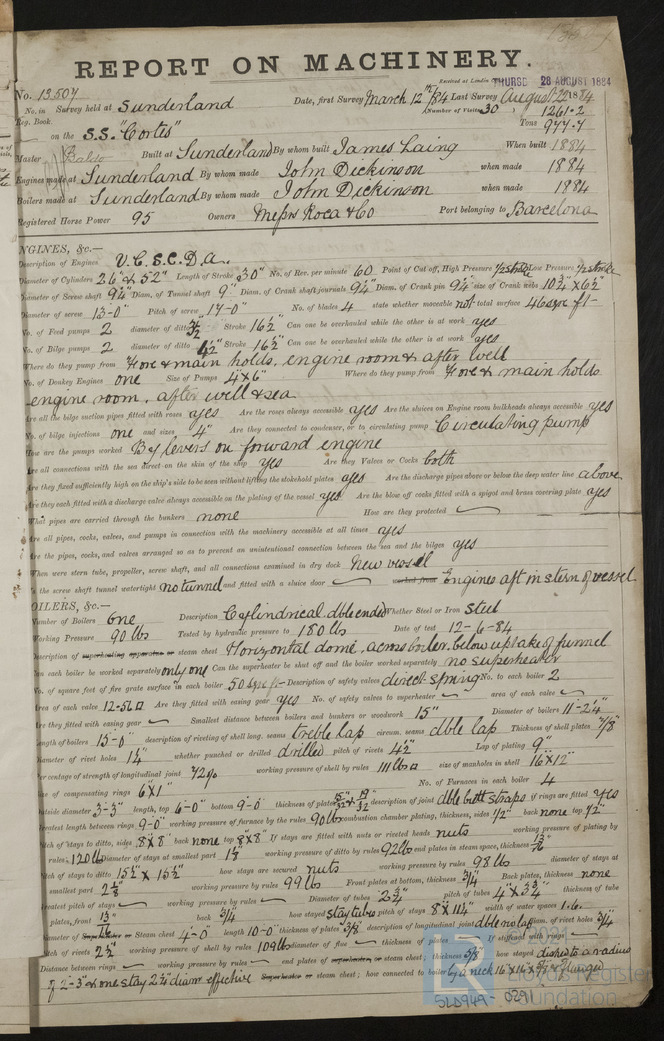 REPORT ON MACHINERY.
No. 13507 Received at London THURS 28 AUGUST 1884
No. in Survey held at Sunderland Date, first Survey March 12th /84 Last Survey August 22 1884
Reg. Book. (Number of Visits 30) 1261.2
on the S.S. "Cortes" Tons 977.7
Master Built at Sunderland By whom built James Laing When built 1884
Engines made at Sunderland By whom made John Dickinson when made 1884
Boilers made at Sunderland By whom made John Dickinson when made 1884
Registered Horse Power 95 Owners Messrs Roca & Co Port belonging to Barcelona
NGINES, &c.—
Description of Engines V.C.S.C.D.A.
Diameter of Cylinders 26" & 52" Length of Stroke 30" No. of Rev. per minute 60 Point of Cut off, High Pressure 1/2 stroke Low Pressure 1/2 stroke
Diameter of Screw shaft 9 1/4" Diam. of Tunnel shaft 9" Diam. of Crank shaft journals 9 1/4" Diam. of Crank pin 9 1/4" size of Crank webs 10 3/4" x 6 1/2"
Diameter of screw 13-0" Pitch of screw 17-0" No. of blades 4 state whether moveable not total surface 46 sqre ft
No. of Feed pumps 2 diameter of ditto Stroke 16 1/2" Can one be overhauled while the other is at work yes
No. of Bilge pumps 2 diameter of ditto 4 1/2" Stroke 16 1/2" Can one be overhauled while the other is at work yes
Where do they pump from Fore & main holds, engine room & after well
No. of Donkey Engines one Size of Pumps 4" x 6" Where do they pump from Fore & main holds
engine room, after well & sea
Are all the bilge suction pipes fitted with roses yes Are the roses always accessible yes Are the sluices on Engine room bulkheads always accessible yes
No. of bilge injections one and sizes 4" Are they connected to condenser, or to circulating pump Circulating pump
How are the pumps worked By levers on forward engine
Are all connections with the sea direct on the skin of the ship yes Are they Valves or Cocks both
Are they fixed sufficiently high on the ship's side to be seen without lifting the stokehold plates yes Are the discharge pipes above or below the deep water line above
Are they each fitted with a discharge valve always accessible on the plating of the vessel yes Are the blow off cocks fitted with a spigot and brass covering plate yes
What pipes are carried through the bunkers none How are they protected
Are all pipes, cocks, valves, and pumps in connection with the machinery accessible at all times yes
Are the pipes, cocks, and valves arranged so as to prevent an unintentional connection between the sea and the bilges yes
When were stern tube, propeller, screw shaft, and all connections examined in dry dock New vessel
Is the screw shaft tunnel watertight no tunnel and fitted with a sluice door worked from Engines aft in stern of vessel
OILERS, &c.—
Number of Boilers One Description Cylindrical dble ended Whether Steel or Iron Steel
Working Pressure 90 lbs Tested by hydraulic pressure to 180 lbs Date of test 12-6-84
Description of superheating apparatus or steam chest Horizontal dome, across boiler, below uptake of funnel
Can each boiler be worked separately only one Can the superheater be shut off and the boiler worked separately no superheater
No. of square feet of fire grate surface in each boiler 50 sqre ft Description of safety valves direct spring No. to each boiler 2
Area of each valve 12.56 Are they fitted with easing gear yes No. of safety valves to superheater area of each valve
Are they fitted with easing gear Smallest distance between boilers and bunkers or woodwork 15" Diameter of boilers 11-2 1/4"
Length of boilers 15-0" description of riveting of shell long. seams treble lap circum. seams dble lap Thickness of shell plates 7/8"
Diameter of rivet holes 1 1/4" whether punched or drilled drilled pitch of rivets 4 1/2" Lap of plating 9"
Percentage of strength of longitudinal joint 72% working pressure of shell by rules 111 lbs size of manholes in shell 16" x 12"
Size of compensating rings 6" x 1" No. of Furnaces in each boiler 4
Outside diameter 3-3" length, top 6-0" bottom 9-0" thickness of plates description of joint dble butt straps if rings are fitted yes
Greatest length between rings 9-0" working pressure of furnace by the rules 90 lbs combustion chamber plating, thickness, sides 1/2" back none top 1/2"
Pitch of stays to ditto, sides 8" x 8" back none top 8" x 8" If stays are fitted with nuts or riveted heads nuts working pressure of plating by
rules 120 lbs Diameter of stays at smallest part working pressure of ditto by rules 92 lbs end plates in steam space, thickness 13/16"
Pitch of stays to ditto 15 1/2" x 15 1/2" how stays are secured nuts working pressure by rules 98 lbs diameter of stays at
smallest part 2 1/8" working pressure by rules 99 lbs Front plates at bottom, thickness 3/4" Back plates, thickness none
Greatest pitch of stays working pressure by rules Diameter of tubes 2 3/4" pitch of tubes 4" x 3 3/4" thickness of tube
plates, front 13/16" back 3/4" how stayed stay tubes pitch of stays 8" x 11 1/4" width of water spaces
Diameter of Superheater or Steam chest 4-0" length 10-0" thickness of plates 3/8" description of longitudinal joint dble no lap diam. of rivet holes 3/4"
Pitch of rivets 2 1/2" working pressure of shell by rules 109 lbs diameter of flue thickness of plates If stiffened with rings
Distance between rings working pressure by rules end plates of superheater, or steam chest; thickness 5/8" how stayed dished to a radius
of 2-3" & one stay 2 1/4" diam effective Superheater or steam chest; how connected to boiler by a neck
Lloyd's Register
Foundation
SLD949-0291